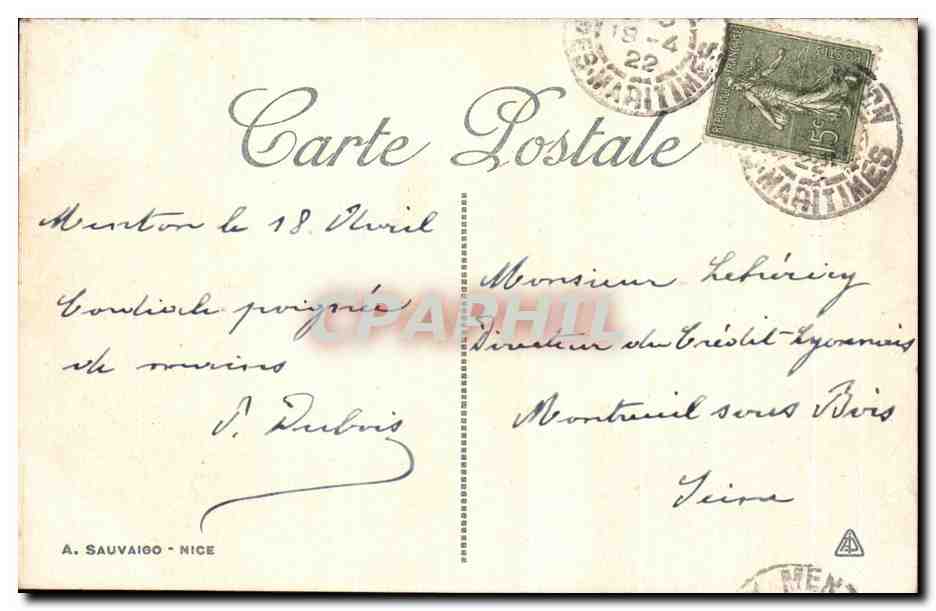 Carte Postale
18-4
22
MARITIMES
RÉPUBLIQUE FRANÇAISE
15c
22
MARITIMES
Menton le 18 Avril
Cordiale poignée
de mains
P. Dubois
A. SAUVAIGO - NICE
Monsieur
Directeur du Crédit-Lyonnais
Montreuil sous Bois
Seine
CPARPHIL
MENT